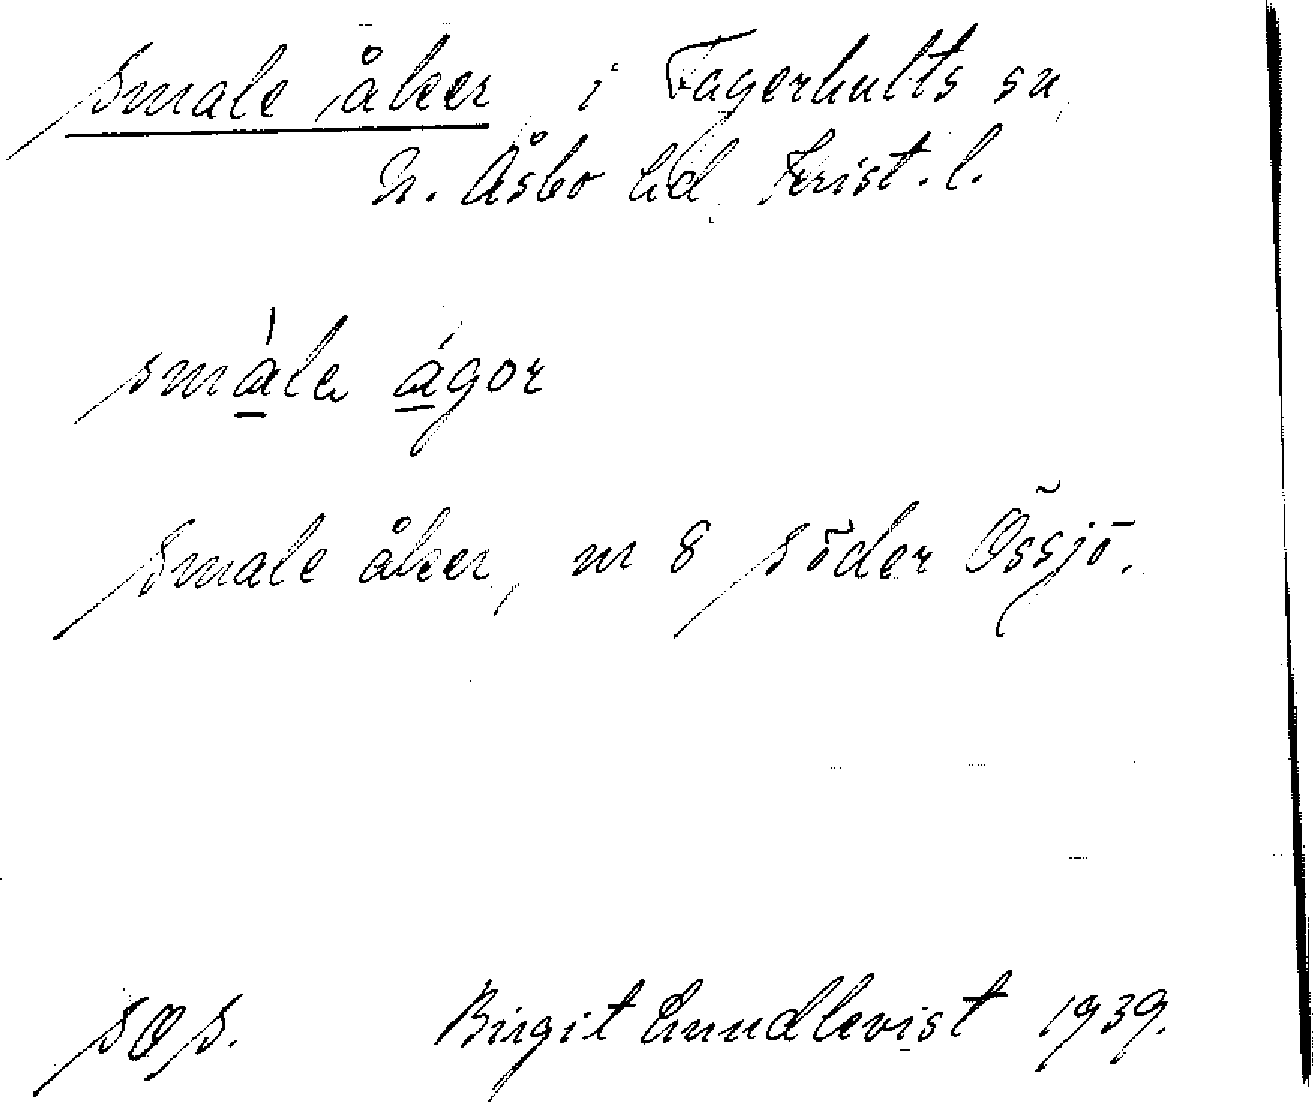 Smale åker i Fagerhults sn,
N. Åsbo hd. Krist. l.
småla ågor
Smale åker, nr 8 Söder Össjö.
SOS. Birgit Lundkvist 1939.